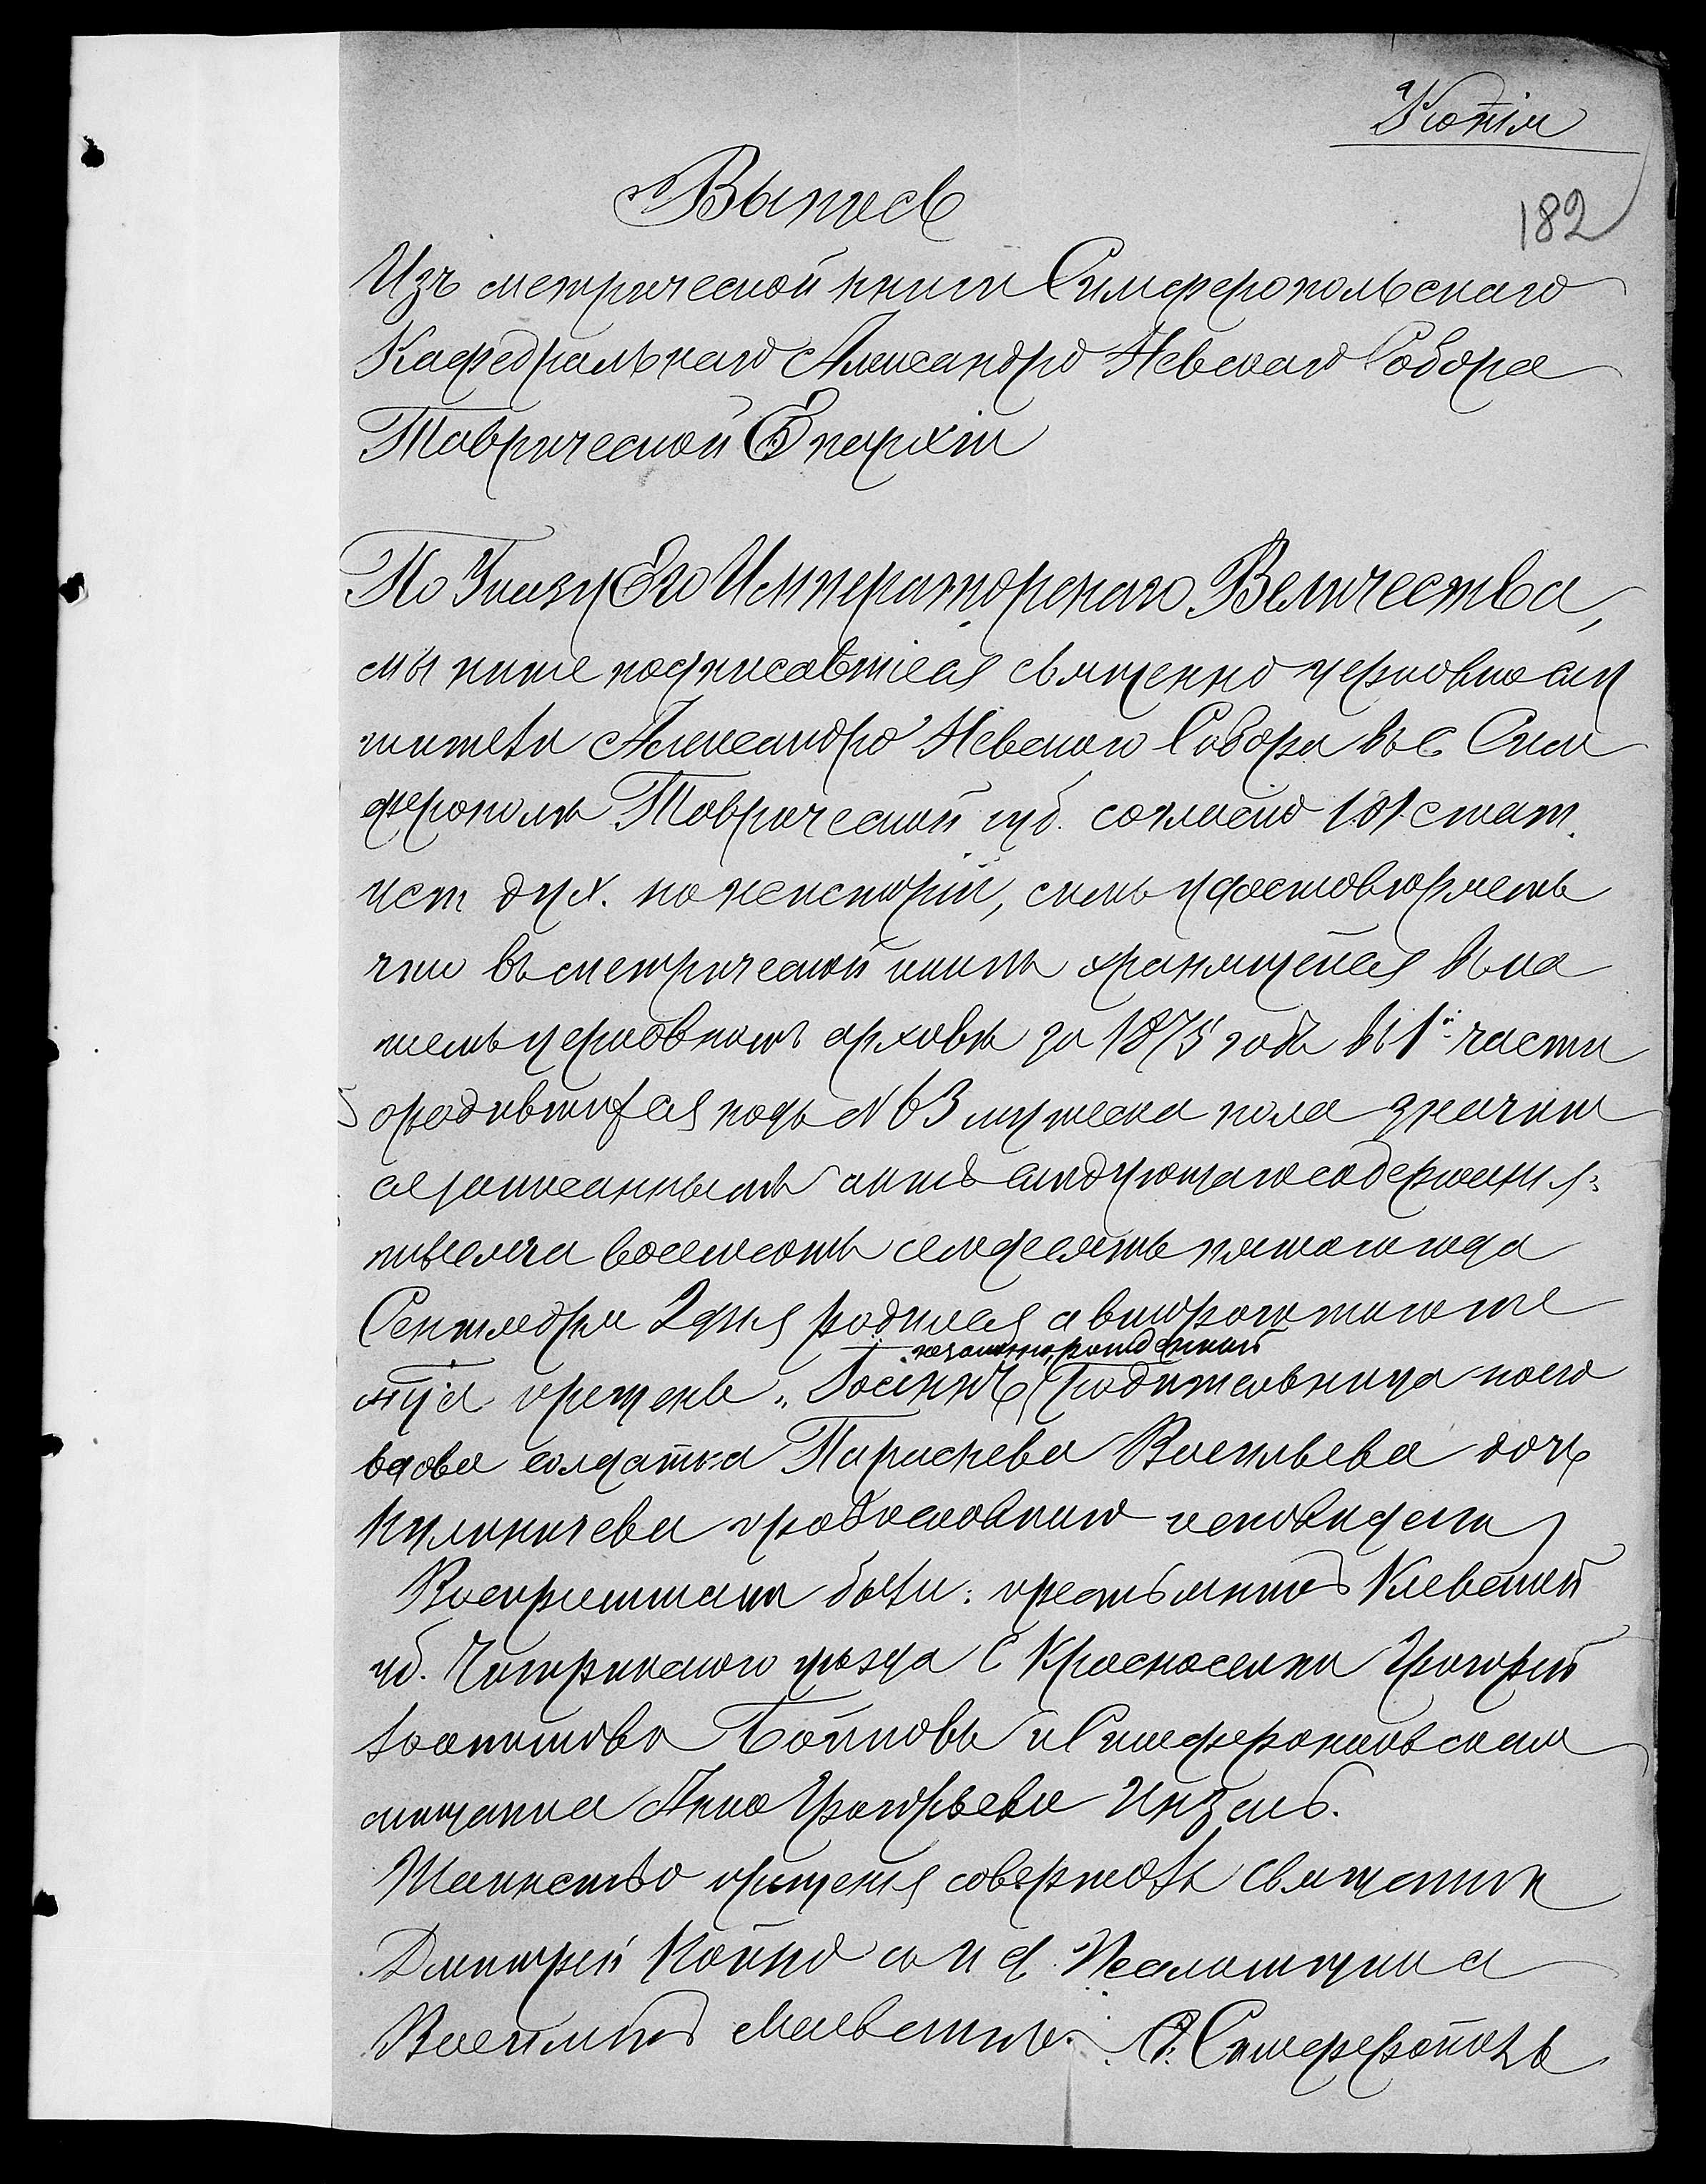 Копія
182
Выпись
Изъ метрической книги Симферопольскаго
Кафедральнаго Александро Невскаго Собора
Таврической Епархіи
По Указу Его Императорскаго Величества,
мы ниже подписавшіеся священно церковно слу
жители Александро Невскаго Собора въ г. Сим
ферополѣ Таврической губ. согласно 101 стат.
уст дух. консисторій, симъ удостовѣряемъ
что въ метрической книгѣ хранящейся въ на
шемъ церковномъ архивѣ за 1875 годъ въ 1й части
о родившихся подъ № 63 мужеска пола значит
ся записаннымъ актъ слѣдующаго содержанія:
тысяча восемьсотъ семдесятъ пятаго года
Сентября 2 дня родился а втораго того же
незаконнорожденный
м-ца крещенъ "Іосифъ" родительница коего
вдова солдатка Параскева Васильева дочь
Кулиничева православнаго исповѣданія
Воспріемники были: крестьянинъ Кіевской
губ. Чигиринскаго уѣзда с Красноселки Григорій
Бойковъ и Симферопольская
мѣщанка Анна Григорьева
Таинство крещенія совершалъ священникъ
Дмитрій Койко съ и д. Псаломщика
Василіемъ г. Симферополь